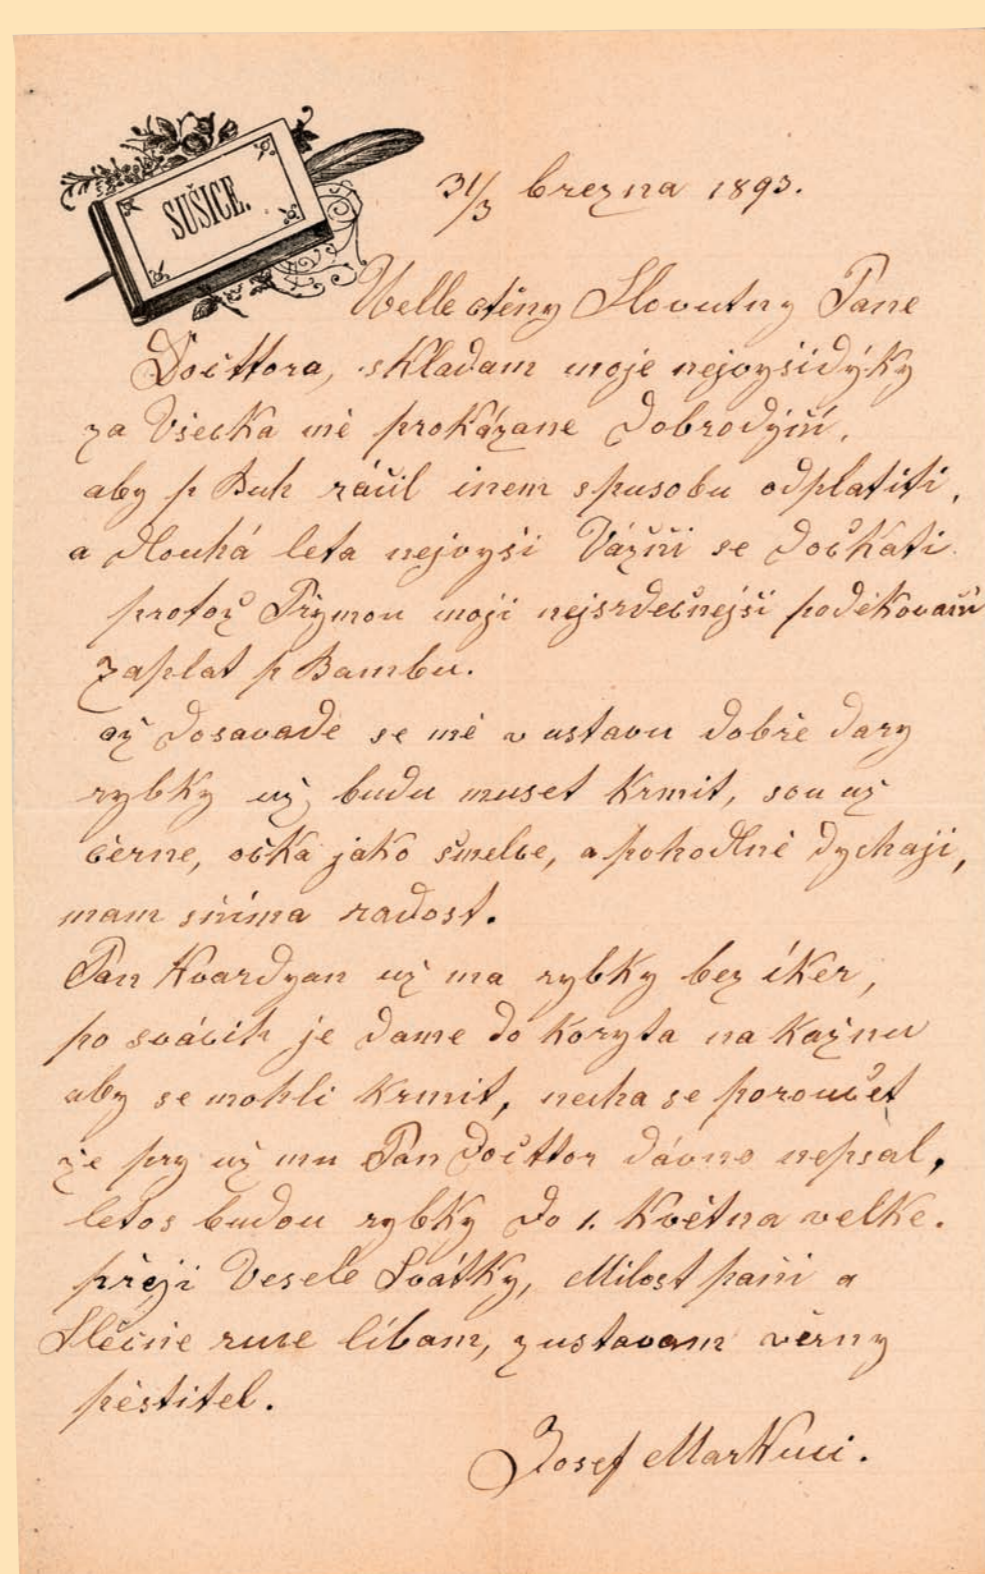 SUŠICE.
31/3 března 1893.
Velle ctěny Slovutny Pane
Dočttora, skladam moje nejvyšidýky
za všecka mě prokázane Dobrodyjní,
aby p Buh ráčil inem spusobu odplatiti,
a Dlouhá leta nejvyši Vážni se dočkati.
protož Prymou moji nejsrdečnejši poděkovani
zaplat p Bambu.
až Dosavade se mě v ustavu dobře dary
rybky už budu muset Krmit, sou už
černe, očka jako šmelce, a pohodlně dychaji,
mam sníma radost.
Pan Kvardyan už ma rybky bez íKer,
po svácih je dame do Koryta na Kažnu
aby se mohli Krmit, necha se poroučet
že pry už mu Pan Dočttor dávno nepsal,
letos budou rybky do 1. Května velke.
přeji Vesele Svátky, Milost paňi a
Slěčně ruce líbam, zustavam věrny
pěstitel.
Josef Markuci.